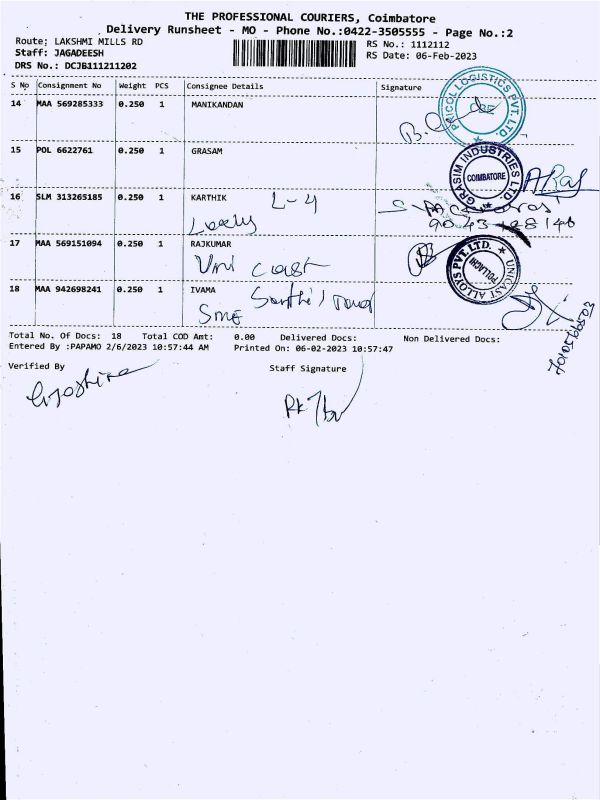 THE PROFESSIONAL COURIERS, Coimbatore
Delivery Runsheet - MO - Phone No.:0422-3505555 - Page No.:2
Route; LAKSHMI MILLS RD RS No.: 1112112
Staff: JAGADEESH RS Date: 06-Feb-2023
DRS No.: DCJB111211202
S No Consignment No Weight PCS Consignee Details Signature
14 MAA 569285333 0.250 1 MANIKANDAN
PRICOL LOGISTICS PVT. LTD. CBE
15 POL 6622761 0.250 1 GRASAM
GRASIM INDUSTRIES LTD. COIMBATORE
16 SLM 313265185 0.250 1 KARTHIK L-4
17 MAA 569151094 0.250 1 RAJKUMAR
Uni Cast
UNICAST ALLOYS PVT. LTD. POLLACHI
18 MAA 942698241 0.250 1 IVAMA
SME
Total No. Of Docs: 18 Total COD Amt: 0.00 Delivered Docs: Non Delivered Docs:
Entered By :PAPAMO 2/6/2023 10:57:44 AM Printed On: 06-02-2023 10:57:47
Verified By Staff Signature